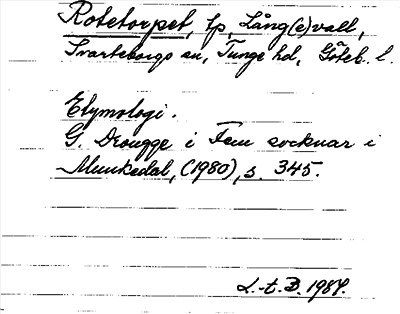 Rotetorpet, tp, Lång(e)vall,
Svarteborgs sn, Tunge hd, Göteb. l.
Etymologi.
G. Drougge i Fem socknar i
Munkedal, (1980), s. 345.
L.-t. B. 1987.